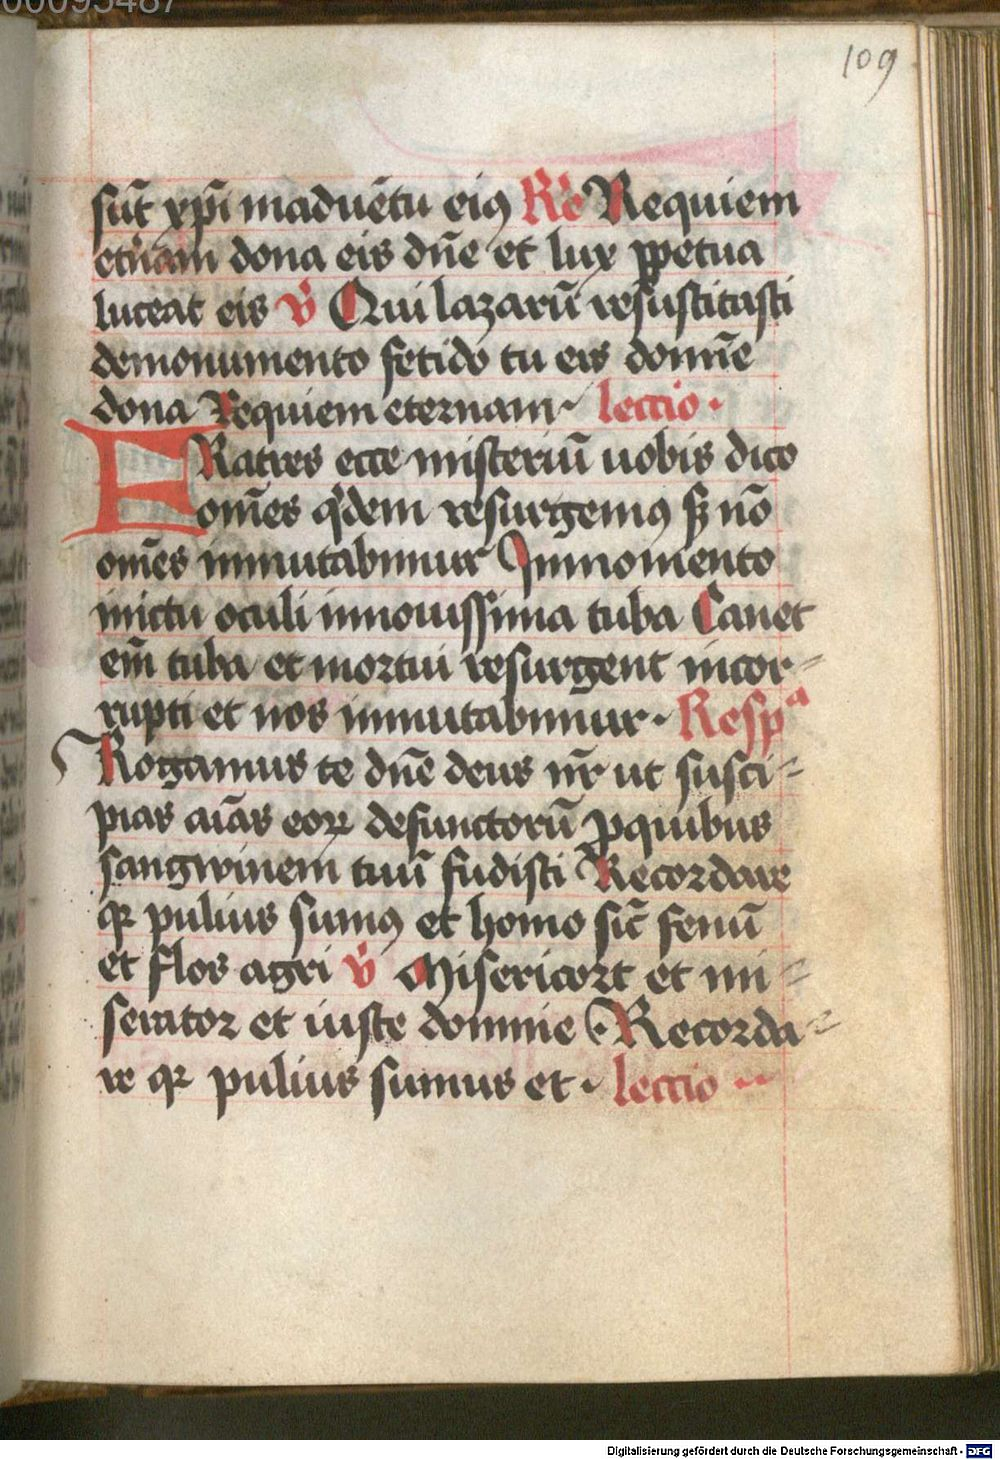 00095487
109
sūt xp̄i inaduētu eiꝯ Re Requiem
etn̄am dona eis dn̄e et lux ꝑpetua
luceat eis v̾ Qui lazarū resuscitasti
demonumento fetido tu eis domīe
dona Requiem eternam lectio ·
FRatres ecce misteriū uobis dico
om̄es qⁱdem resurgemꝯ sꝫ nō
om̄es inmutabimur Inmomento
inictu oculi innouissima tuba Canet
em̄ tuba et mortui resurgent incor⸗
rupti et nos inmutabimur · Respᵃ
Rogamus te dn̄e deus nr̄ ut susci⸗
pias aīas eoꝝ defunctorū ꝓquibus
sangwinem tuū fudisti Recordare
qꝛ puluis sumꝯ et homo sic̄ fenū
et flos agri v̾ Misericort et mi⸗
serator et iuste domine · Recorda⸗
re qꝛ puluis sumus et · lectio ··
Digitalisierung gefördert durch die Deutsche Forschungsgemeinschaft - DFG